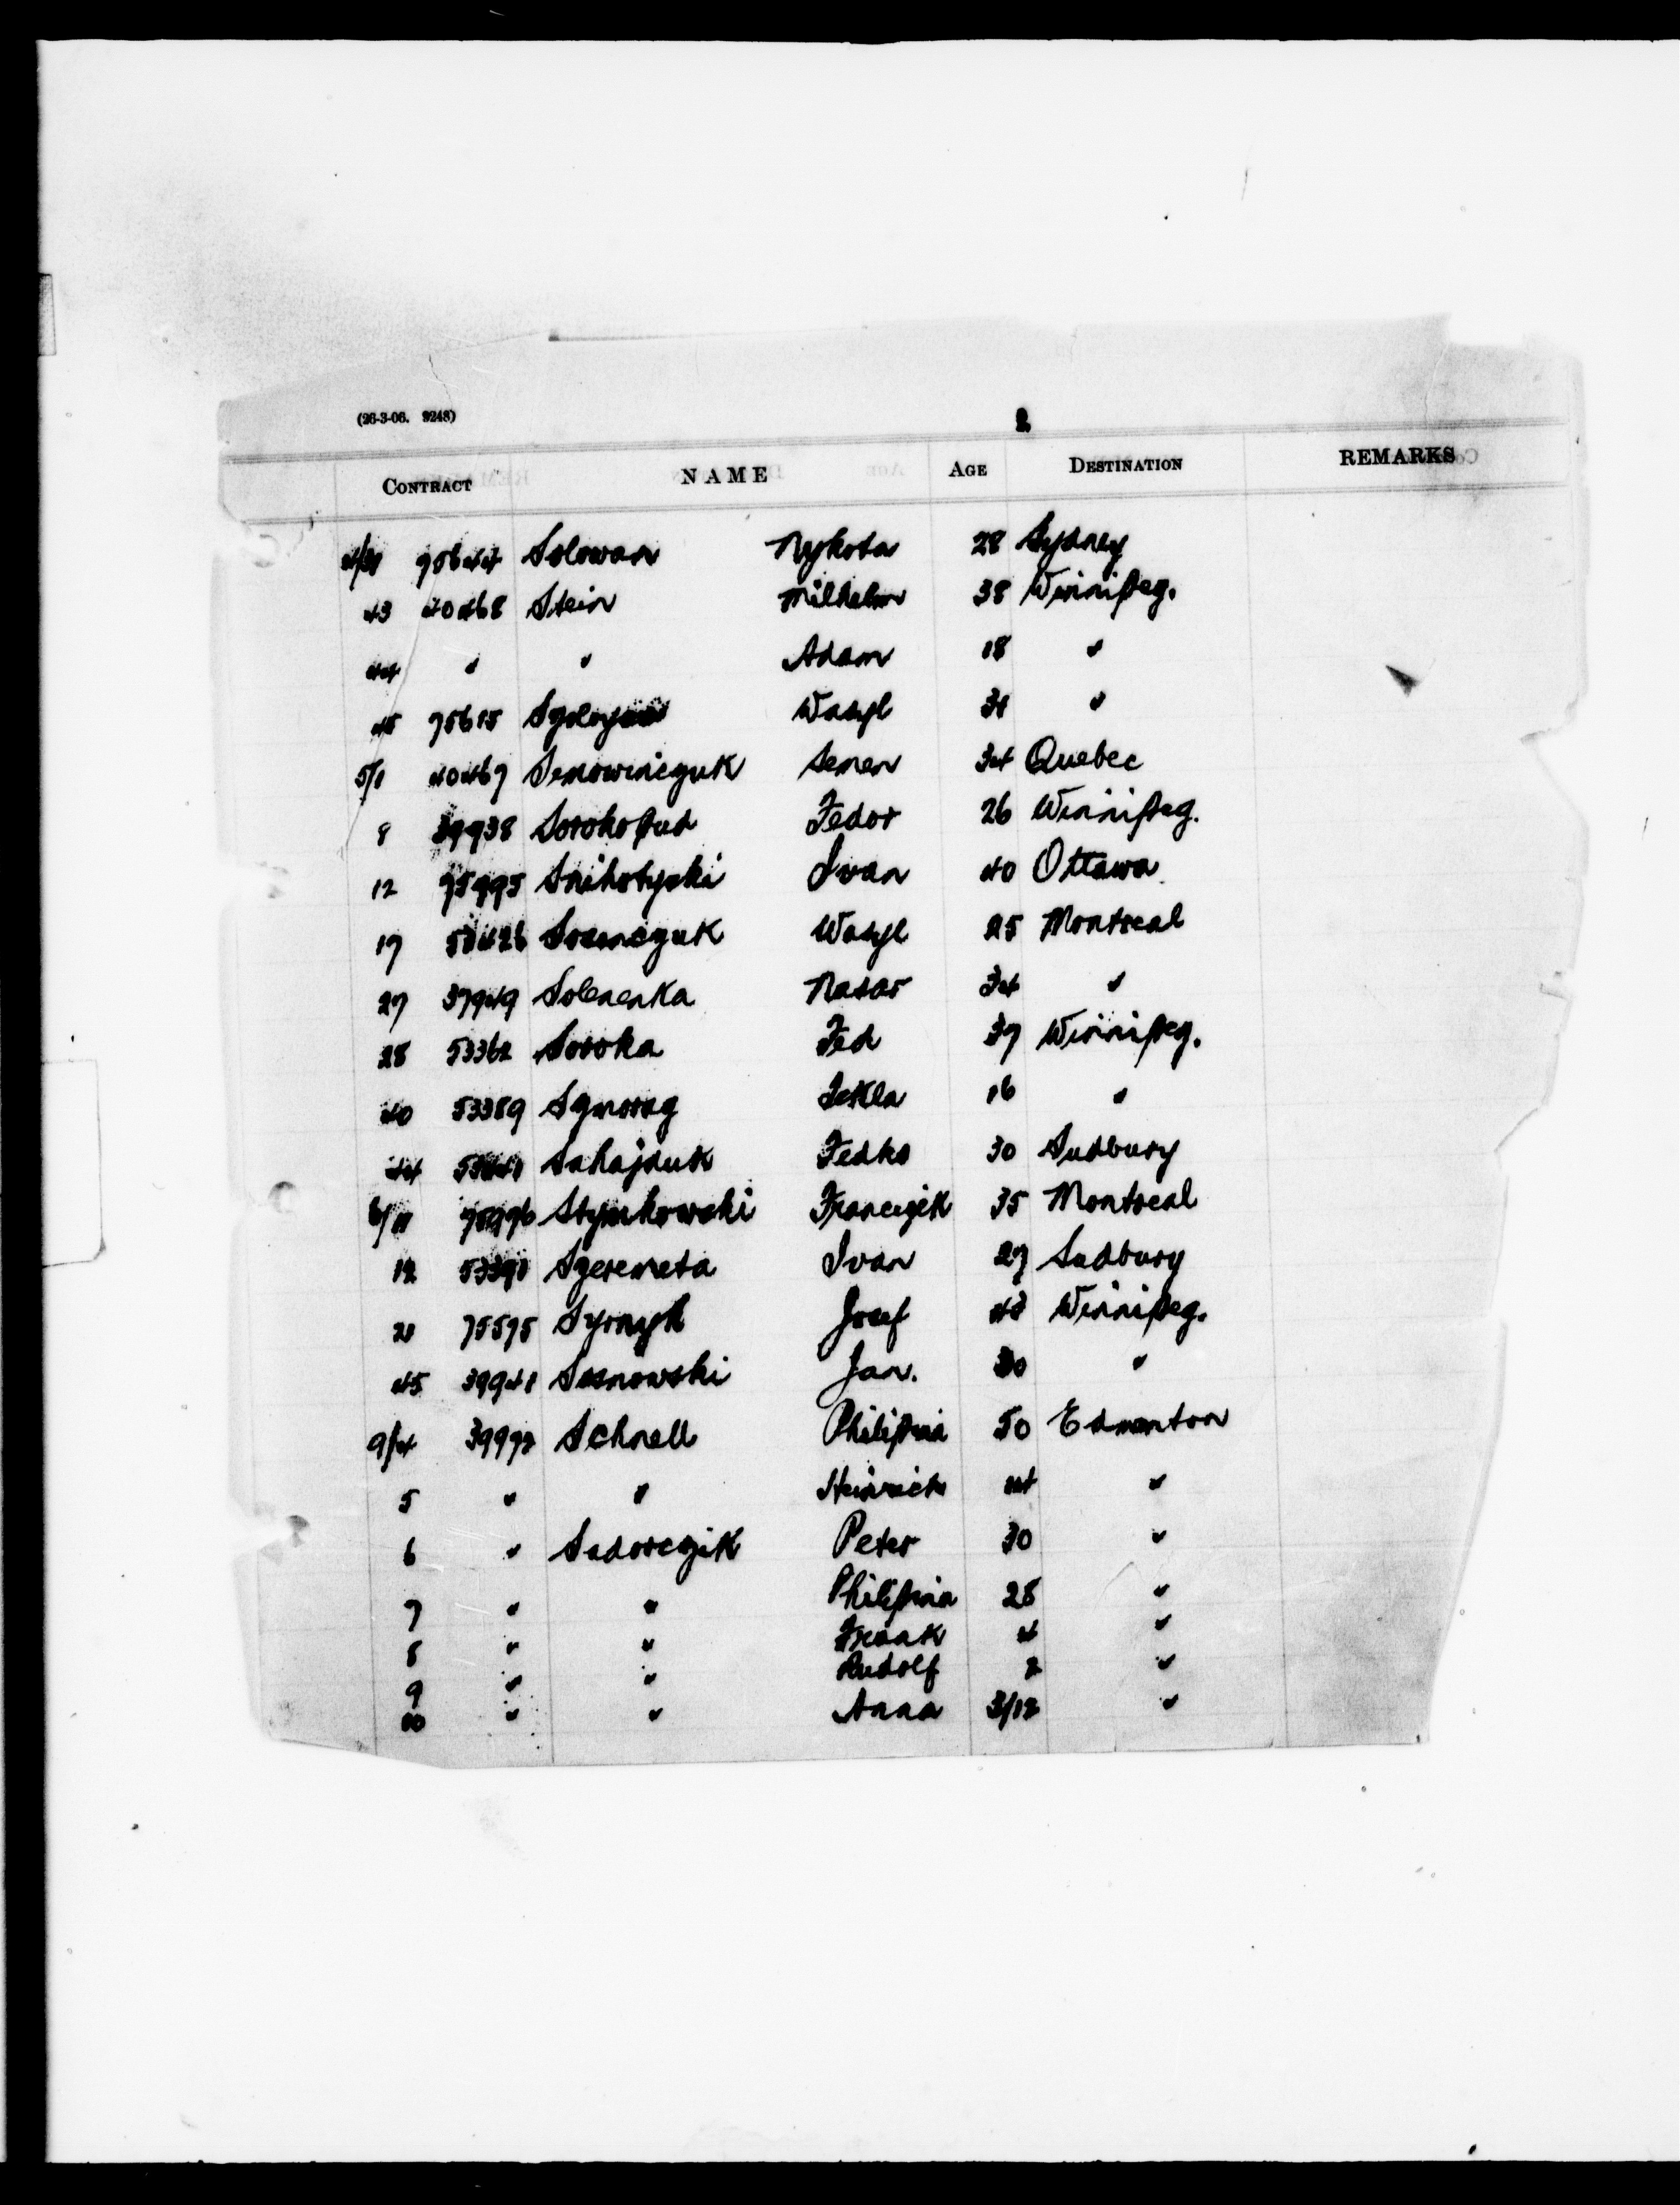 (26-3-06. 9248) 2
CONTRACT NAME AGE DESTINATION REMARKS
Solowan Nykota 28 Sydney
43 40468 Stein Wilhelm 38 Winnipeg.
44 " " Adam 18 "
45 75615 Wasyl "
5/1 40467 Semowiniczuk Semen 34 Quebec
8 39938 Sorokopud Fedor 26 Winnipeg.
12 75995 Snihotycki Ivan 40 Ottawa
17 Wasyl 25 Montreal
27 37949 Solenenka Nazar 34 "
28 53362 Soroka Fed 37 Winnipeg.
40 53389 Tekla 16 "
44 Sahajduk Fedko 30 Sudbury
6/11 75996 Stynkowski Franciszek 35 Montreal
12 53391 Szeremeta Ivan 27 Sudbury
21 75595 Josef Winnipeg.
45 39941 Sosnowski Jan. 30 "
9/4 Schnell Philipina 50 Edmonton
5 " " Heinrich "
6 " Sadorczik Peter 30 "
7 " " Philipina 28 "
8 " " 4 "
9 " " Rudolf 2 "
10 " " Anna 3/12 "